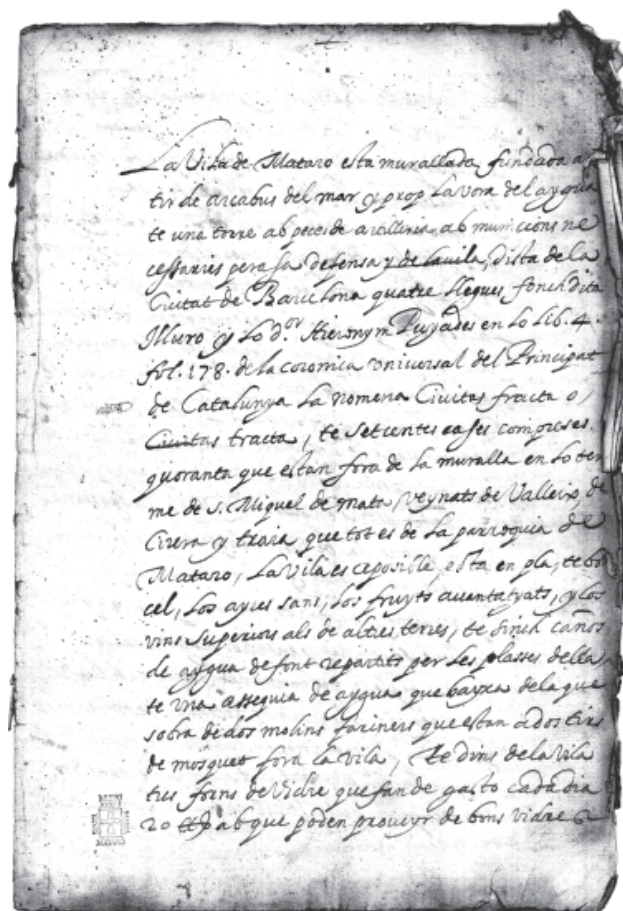 La Vila de Mataro esta murallada, fundada a
tir de arcabus del mar y prop la vora del aygua
te una torre ab peces de artilleria ab municions ne
cessaries pera sa defensa y de la vila, dista de la
Ciutat de Barcelona quatre llegues, fonch dita
Illuro y lo d.or Hieronym Pujades en lo lib. 4.
fol. 178. de la coronica universal del Principat
de Catalunya la nomena Civitas fracta o,
Civitas tracta, te setcentes cases compreses
quoranta que estan fora de la muralla en lo ter
me de S. Miquel de mata, veynats de Valleix de
Cirera y traia que tot es de la parroquia de
Mataro, la vila es aposible, esta en pla, te bo
cel, los ayres sans, los fruyts auentatyats, y los
vins superiors als de altres terres, te sinch caños
de aygua de font repartits per les plasses della,
te una assequia de aygua que bayxa de la que
sobra de dos molins fariners que estan a dos tirs
de mosquet fora la vila, te dins de la vila
tres forns de vidre que fan de gasto cada dia
20 ab que poden proveyr de bons vidres